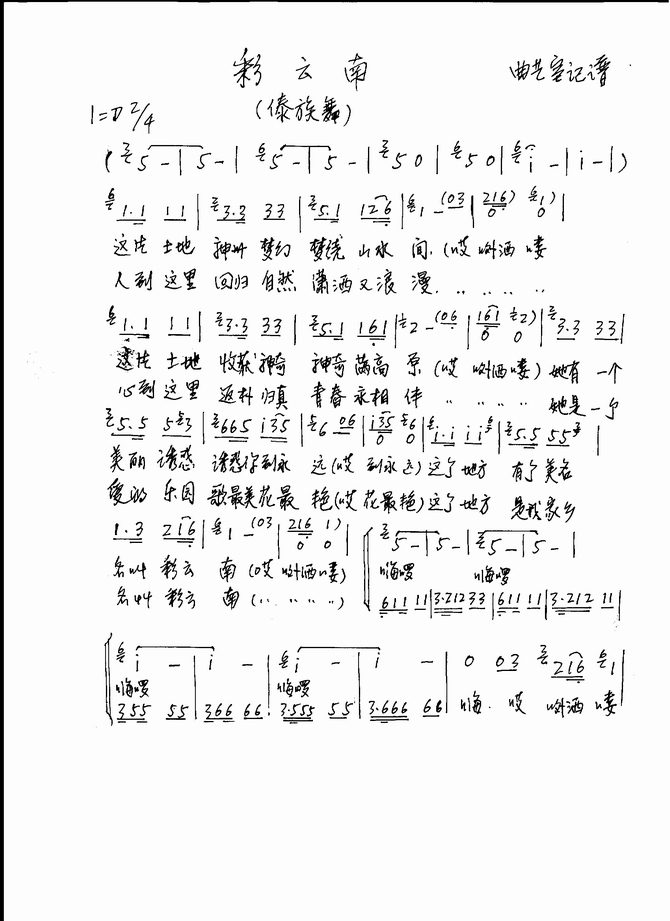 彩云南 曲艺室记谱
1=D 2/4 (傣族舞)
( 5 - | 5 - | 5 - | 5 - | 5 0 | 5 0 | i - | i - | )
1.1 11 | 3.3 33 | 5.1 126 | 1 - (03 | 216 1) 0 0 |
这片 土地 神州 梦幻 梦绕 山水 间. (哎 洒 喽
人到 这里 回归 自然 潇洒又浪 漫. .. .. .. ..
1.1 11 | 3.3 33 | 5.1 161 | 2 - (06 | 161 2) 0 0 | 3.3 33 |
这片 土地 收获 神奇 神奇 高 原 (哎 洒喽) 她有 一个
心到 这里 返朴 归真 青春 永相 伴 .. .. .. .. 她是 一个
5.5 53 | 665 i35 | 6 06 | i35 6 0 0 | i.i ii | 5.5 55 |
美丽 诱惑 诱惑你到永 远(哎 到永远) 这个地方 有个美名
爱的 乐园 歌最美花最 艳(哎 花最艳) 这个地方 是我家乡
1.3 216 | 1 - (03 | 216 1) 0 0 | 5 - | 5 - | 5 - | 5 - |
名叫 彩云 南 (哎 洒喽) 嗨啰 嗨啰
名叫 彩云 南 (.. .. .. ..) 611 11 | 3.212 33 | 611 11 | 3.212 11 |
i - | i - | i - | i - | 0 03 216 1 |
嗨啰 嗨啰
355 55 | 366 66 | 3.555 55 | 3.666 66 | 嗨. 哎 洒 喽